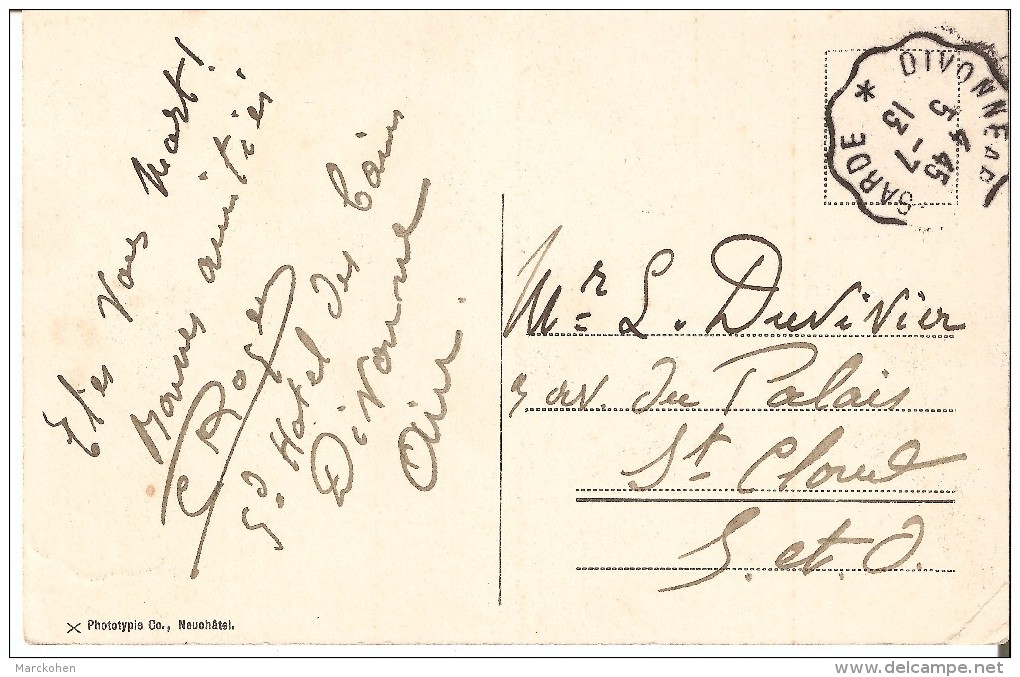 Etes Vous Mort!
Bonnes amitiés
CRoger
Gd. Hotel des bains
Divonne
Ain.
DIVONNE
GARDE *
13-7
45
Mr. L. Duvivier
3 av. du Palais
St. Cloud
S. et. O.
Phototypie Co., Neuchâtel.
Marckohen
delcampe.net